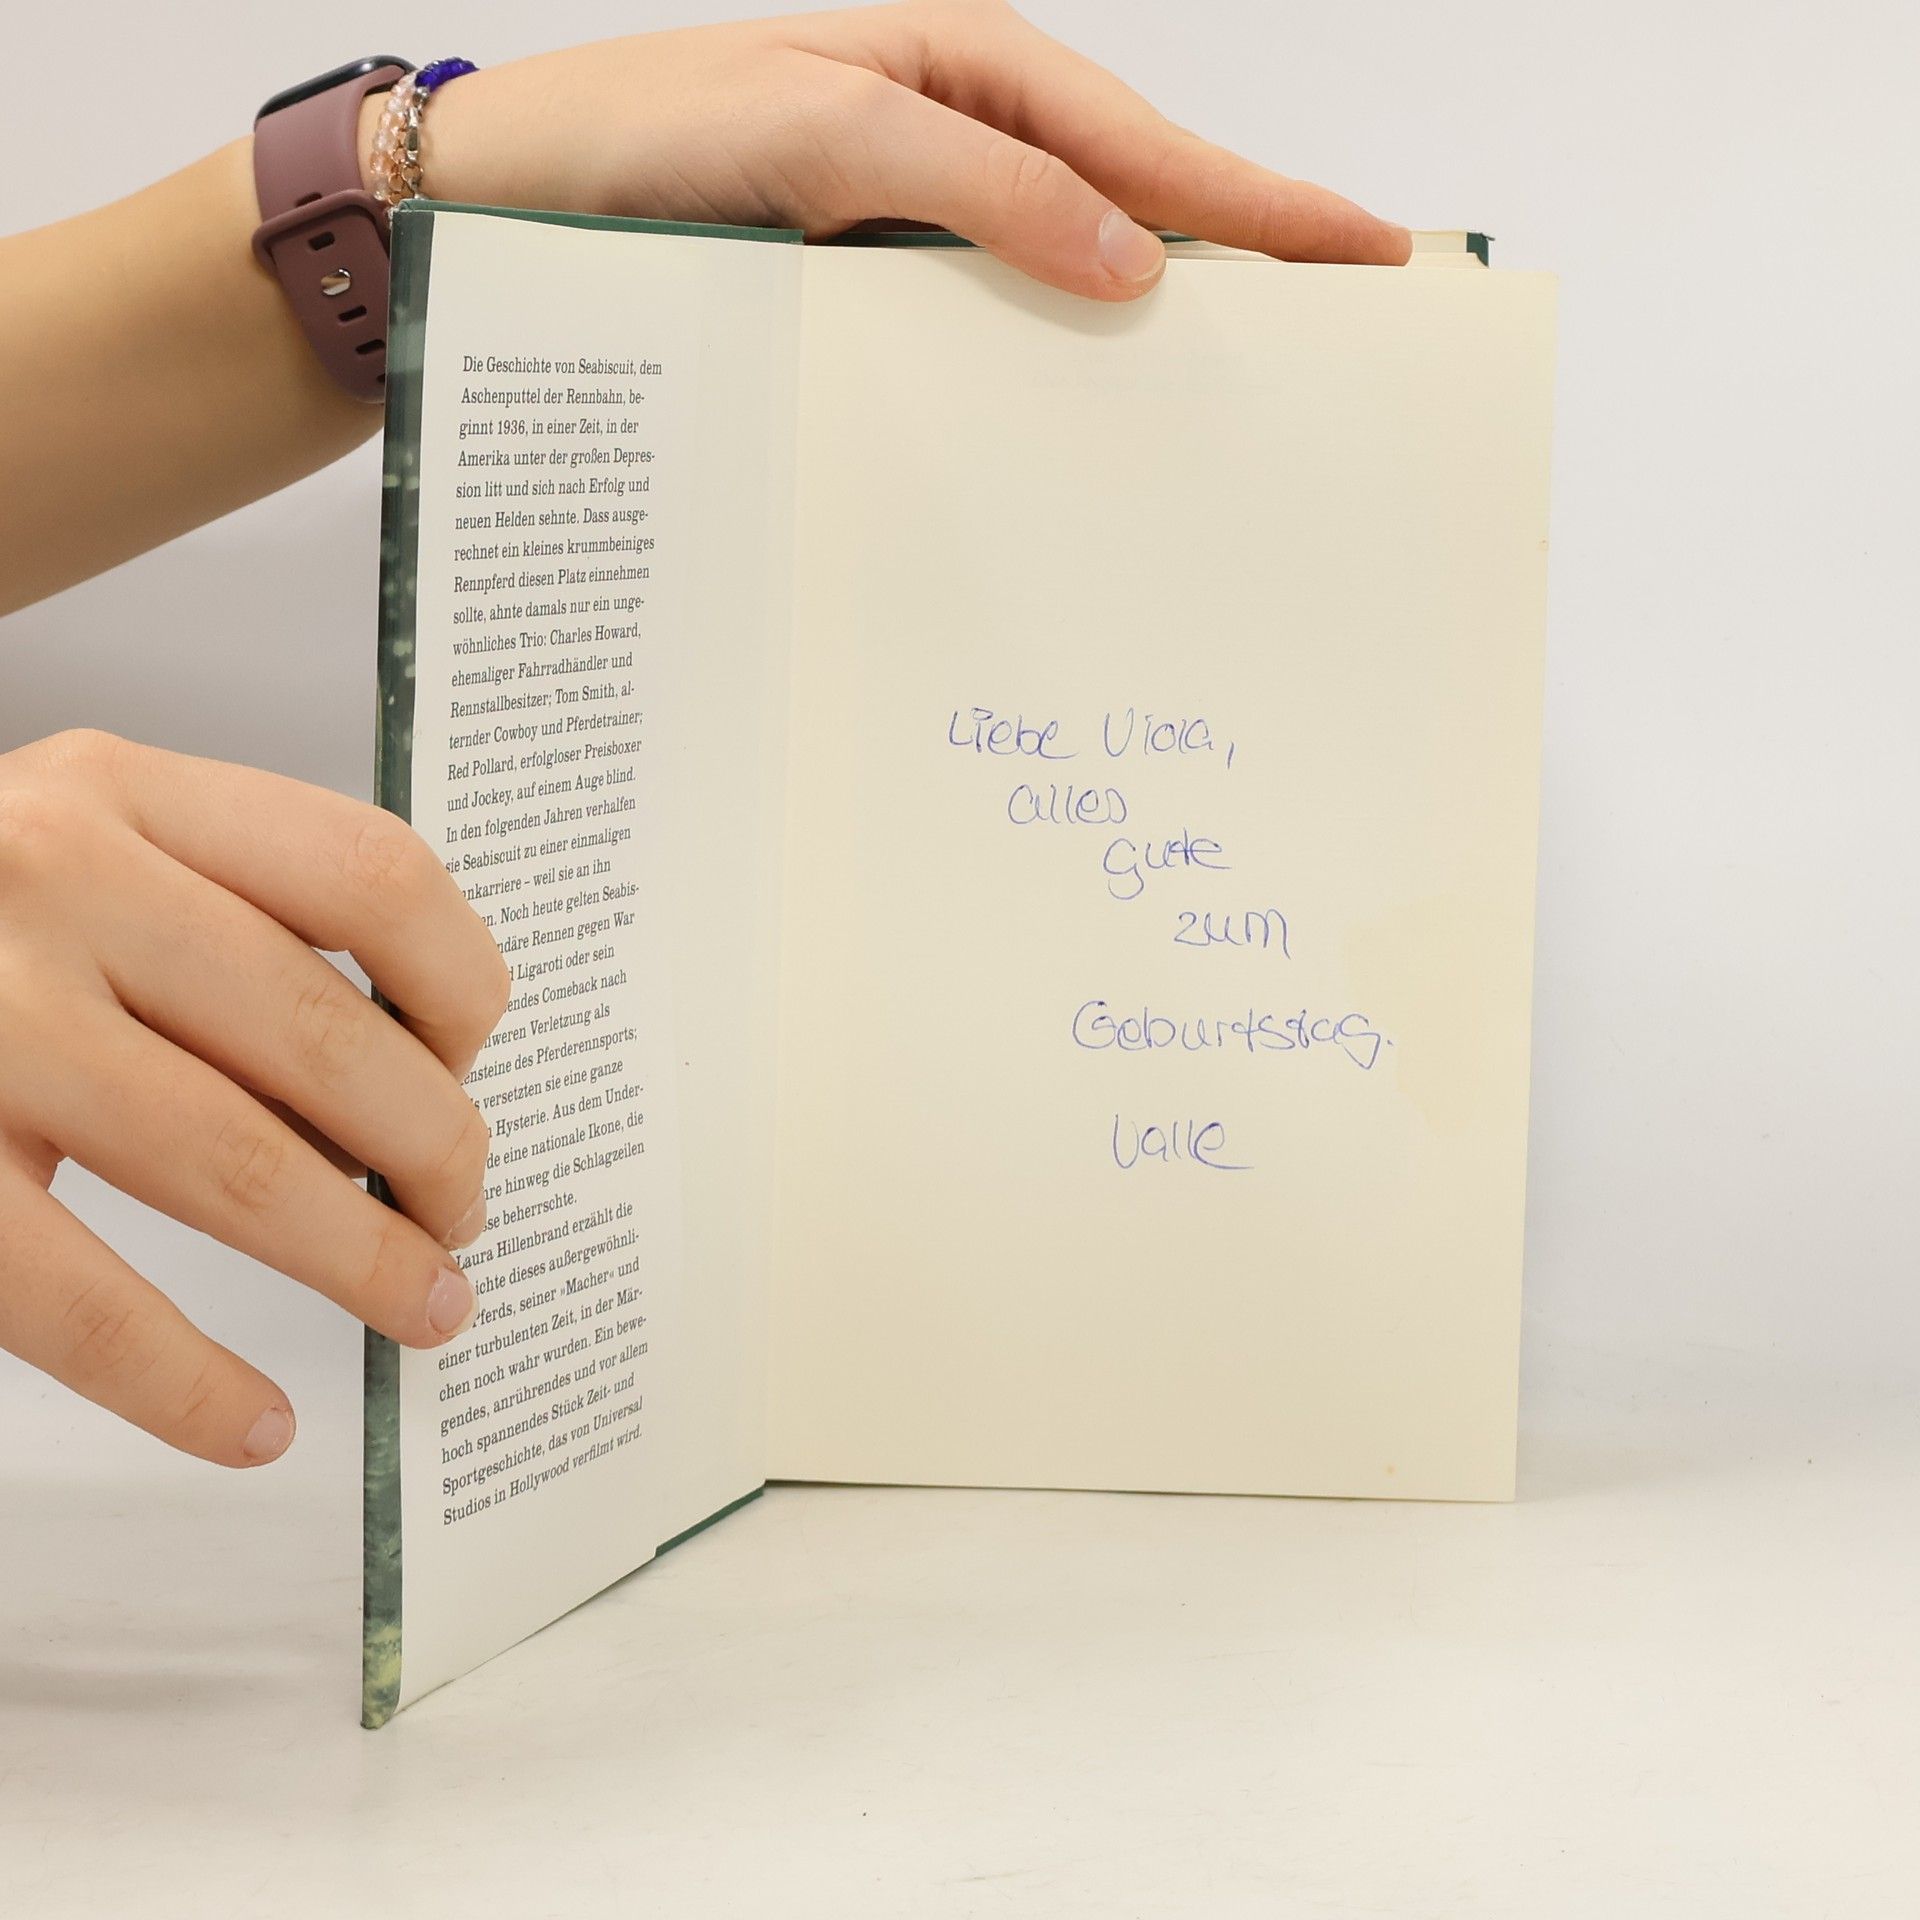 Die Geschichte von Seabiscuit, dem
Aschenputtel der Rennbahn, be-
ginnt 1936, in einer Zeit, in der
Amerika unter der großen Depres-
sion litt und sich nach Erfolg und
neuen Helden sehnte. Dass ausge-
rechnet ein kleines krummbeiniges
Rennpferd diesen Platz einnehmen
sollte, ahnte damals nur ein unge-
wöhnliches Trio: Charles Howard,
ehemaliger Fahrradhändler und
Rennstallbesitzer; Tom Smith, al-
ternder Cowboy und Pferdetrainer;
Red Pollard, erfolgloser Preisboxer
und Jockey, auf einem Auge blind.
In den folgenden Jahren verhalfen
sie Seabiscuit zu einer einmaligen
nnkarriere – weil sie an ihn
en. Noch heute gelten Seabis-
ndäre Rennen gegen War
d Ligaroti oder sein
endes Comeback nach
hweren Verletzung als
ensteine des Pferderennsports;
s versetzten sie eine ganze
n Hysterie. Aus dem Under-
de eine nationale Ikone, die
hre hinweg die Schlagzeilen
sse beherrschte.
Laura Hillenbrand erzählt die
ichte dieses außergewöhnli-
Pferds, seiner »Macher« und
einer turbulenten Zeit, in der Mär-
chen noch wahr wurden. Ein bewe-
gendes, anrührendes und vor allem
hoch spannendes Stück Zeit- und
Sportgeschichte, das von Universal
Studios in Hollywood verfilmt wird.
Liebe Viola,
alles
gute
zum
Geburtstag.
Valle